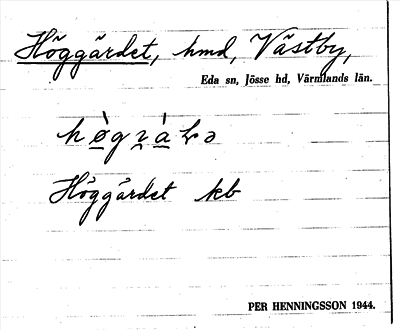 Höggärdet, hmd, Västby,
Eda sn, Jösse hd, Värmlands län.
Höggärdet kb
PER HENNINGSSON 1944.